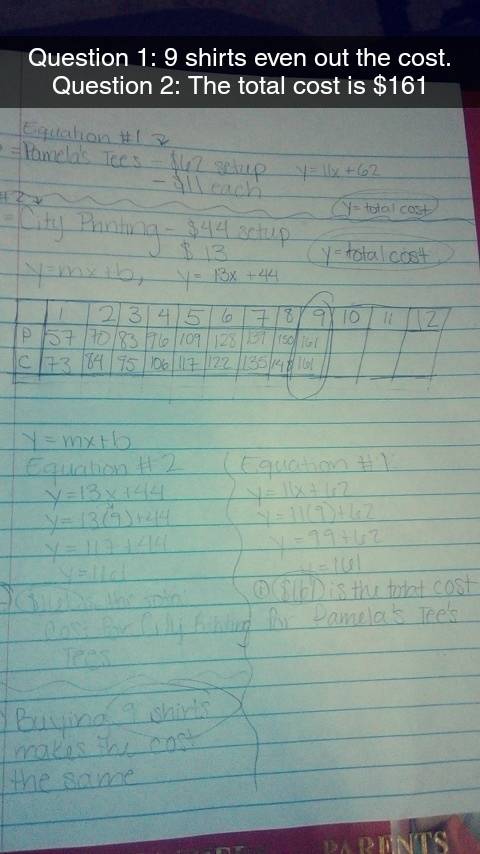 Question 1: 9 shirts even out the cost.
Question 2: The total cost is $161
Equation #1
= Pamela's Tees - $62 setup y=11x+62
- $11 each
y=total cost
#2
= City Printing - $44 setup
$13
y=total cost
y=mx+b, y= 13x +44
1 2 3 4 5 6 7 8 9 10 11 12
P 57 70 83 96 109 128 139 150 161
C 73 84 95 106 117 122 135 148 161
y=mx+b
Equation #2 Equation #1
y=13x+44 y=11x+62
y=13(9)+44 y=11(9)+62
y=117+44 y=99+62
y=161 y=161
($161) is the total ① ($161) is the total cost
cost for City Printing for Pamela's Tee's
Tees
Buying 9 shirts
makes the cost
the same
PARENTS